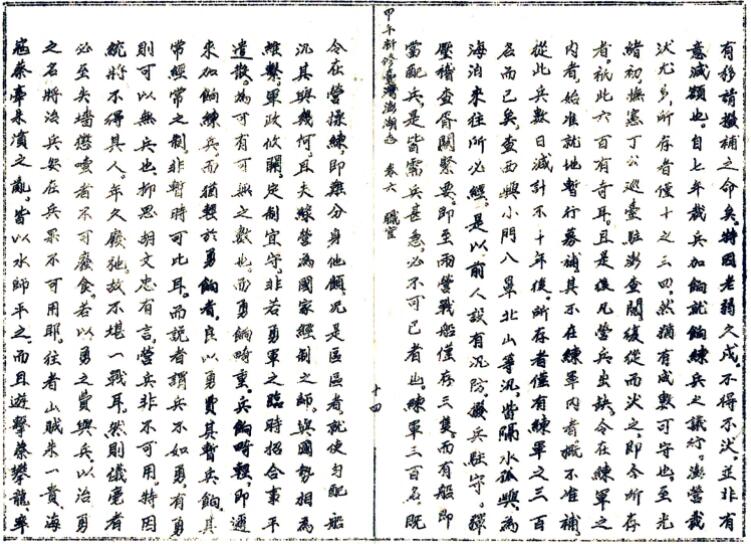 有移請撥補之命矣。特因老弱久戍。不得不汰。並非有
意減額也。自七年裁兵加餉就餉練兵之議行。澎營裁
汰尤多。所存者僅十之三四。然猶有成數可守也。至光
緒初。撫憲丁公巡臺駐澎查閱後從而汰之。即今所存
者。祇此六百有奇耳。且是後凡營兵出缺。令在練軍之
內者。始准就地暫行募補。其不在練軍內者。概不准補。
從此兵數日減。計不十年後。所存者僅有練軍之三百
名而已矣。查西嶼小門八罩北山等汛。皆隔水孤嶼。為
海消來往所必經。是以前人設有汛防。撥兵駐守。彈
壓稽查胥關緊要。即至兩營戰船僅存三隻。而有船即
當配兵。是皆需兵甚急。必不可已者也。練軍三百名。既
甲午新修臺灣澎湖志 卷六 職官
十四
令在營操練。即難分身他顧。況是區區者。就使勻配船
汛其與幾何。且夫綠營為國家經制之師。與國勢相為
維繫。軍政攸關。定制宜守。非若勇軍之臨時招合事平
遣散。為可有可無之數也。而勇餉畸重。兵餉畸輕。即邇
來加餉練兵。而猶輕於勇餉者。良以勇費其暫。兵餉其
常。經常之制。非暫時可比耳。而說者謂兵不如勇。有勇
則可以無兵也。抑思胡文忠有言。營兵非不可用。特因
統將不得其人。年久廢弛。故不堪一戰耳。然則儀毫者
必至失墻。懲噎者不可廢食。若以勇之費與兵。以治勇
之名將治兵。安在兵果不可用耶。往者山賊朱一貴。海
寇蔡牽朱濆之亂。皆以水師平之。而且遊擊蔡攀龍。率